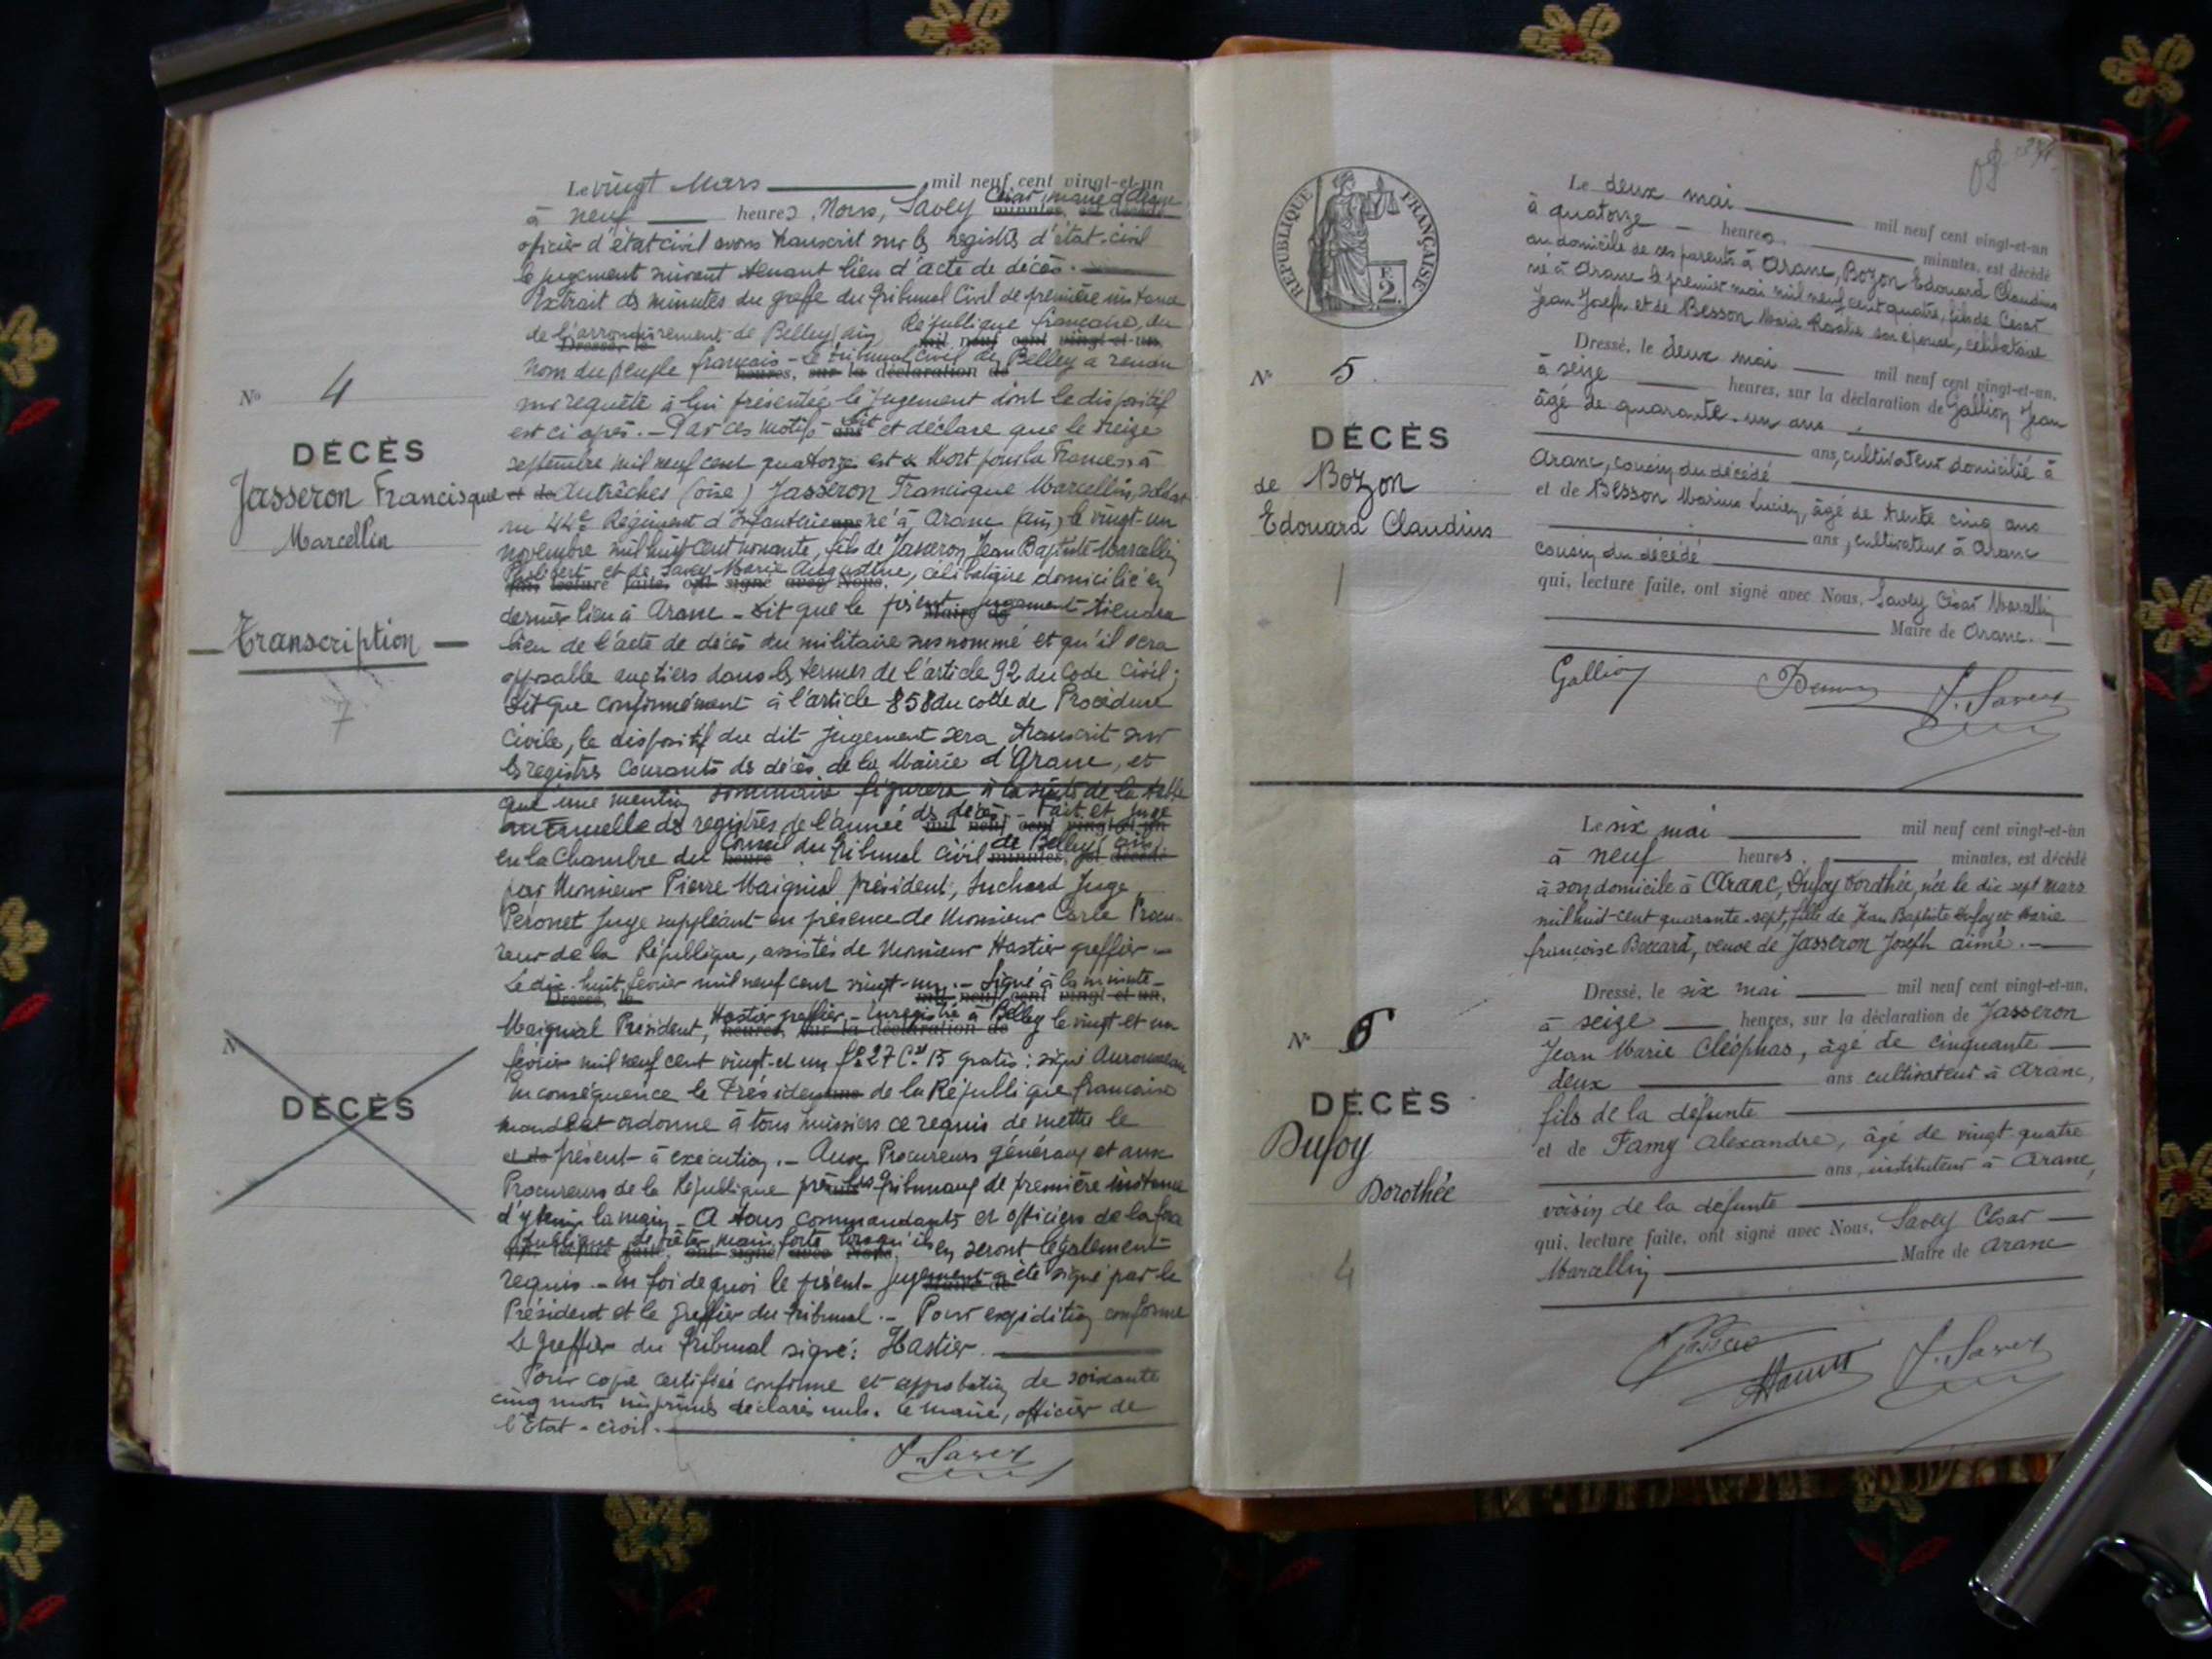 Le vingt Mars mil neuf cent vingt-et-un
à neuf heures, Nous, Savey César, maire d'Aranc
minutes, est décédé
officier d'état civil avons transcrit sur les registres d'état-civil
le jugement suivant tenant lieu d'acte de décès.
Extrait des minutes du greffe du Tribunal Civil de première instance
de l'arrondissement de Belley, ain, République française, du
Dressé, le mil neuf cent vingt-et-un,
nom du peuple français - Le tribunal civil de Belley a rendu
heures, sur la déclaration de
sur requête à lui présentée le jugement dont le dispositif
est ci après. - Par ces motifs - Dit et déclare que le treize
septembre mil neuf cent quatorze est Mort pour la France à
et de Autrêches (oise) Jasseron Francisque Marcellin, soldat
au 44e Régiment d'Infanterie né à Aranc (ain) le vingt-un
novembre mil huit cent nonante, fils de Jasseron Jean Baptiste Marcellin
Philibert et de Savey Marie Augustine, célibataire domicilié en
qui, lecture faite, ont signé avec Nous,
dernier lieu à Aranc - Dit que le présent jugement tiendra
Maire de
lieu de l'acte de décès du militaire susnommé et qu'il sera
opposable aux tiers dans les termes de l'article 92 du Code Civil;
Dit que conformément à l'article 858 du code de Procédure
Civile, le dispositif du dit jugement sera transcrit sur
les registres courants de décès de la Mairie d'Aranc, et
que une mention sommaire figurera à la suite de la table
annuelle des registres de l'année des décès - Fait et jugé
mil neuf cent vingt-et-un
en la Chambre du Conseil du Tribunal Civil de Belley, ain,
heure minutes, est décédé
par Monsieur Pierre Maignial président, Suchard Juge
Peronet Juge suppléant en présence de Monsieur Carle Procu-
reur de la République, assistés de Monsieur Hastier greffier -
Le dix-huit février mil neuf cent vingt-un. - Signé à la minute -
Dressé, le mil neuf cent vingt-et-un,
Maignial Président, Hastier greffier, - Enregistré à Belley le vingt et un
heures, sur la déclaration de
février mil neuf cent vingt-et un f° 27 Ce 15 gratis: signé
En conséquence le Président de la République française
mande et ordonne à tous huissiers ce requis de mettre le
et de présent à exécution. - Aux Procureurs généraux et aux
Procureurs de la République près les Tribunaux de première instance
d'y tenir la main - A tous commandants et officiers de la force
publique de prêter main forte lorsqu'ils en seront légalement
qui, lecture faite, ont signé avec Nous,
requis. - En foi de quoi le présent jugement a été signé par le
Maire de
Président et le greffier du tribunal. - Pour expédition conforme
Le Greffier du Tribunal signé: Hastier.
Pour copie certifiée conforme et approbation de soixante
cinq mots imprimés déclarés nuls. Le maire, officier de
l'Etat-civil.
Savey
No 4
DÉCÈS
Jasseron Francisque
Marcellin
Transcription
7
N
DÉCÈS
RÉPUBLIQUE FRANÇAISE
2
No 5.
DÉCÈS
de Bozon
Edouard Claudius
1
Le deux mai mil neuf cent vingt-et-un
à quatorze heures minutes, est décédé
au domicile de ses parents à Aranc, Bozon Edouard Claudius
né à Aranc le premier mai mil neuf cent quatre, fils de César
Jean Joseph et de Besson Marie Rosalie son épouse, célibataire
Dressé, le deux mai mil neuf cent vingt-et-un,
à seize heures, sur la déclaration de Gallion Jean
âgé de quarante-un ans
ans, cultivateur domicilié à
Aranc, cousin du décédé
et de Besson Marius Lucien, âgé de trente cinq ans
ans, cultivateur à Aranc
cousin du décédé
qui, lecture faite, ont signé avec Nous, Savey César Marcellin
Maire de Aranc.
Gallion Savey
No 6
DÉCÈS
Dufoy
Dorothée
4
Le six mai mil neuf cent vingt-et-un
à neuf heures. minutes, est décédé
à son domicile à Aranc, Dufoy Dorothée, née le dix sept mars
mil huit-cent quarante-sept, fille de Jean Baptiste Dufoy et Marie
françoise Beccard, veuve de Jasseron Joseph aimé.
Dressé, le six mai mil neuf cent vingt-et-un,
à seize heures, sur la déclaration de Jasseron
Jean Marie Cléophas, âgé de cinquante
deux ans cultivateur à Aranc,
fils de la défunte
et de Famy Alexandre, âgé de vingt quatre
ans, instituteur à Aranc,
voisin de la défunte
qui, lecture faite, ont signé avec Nous, Savey César
Marcellin Maire de Aranc
Savey